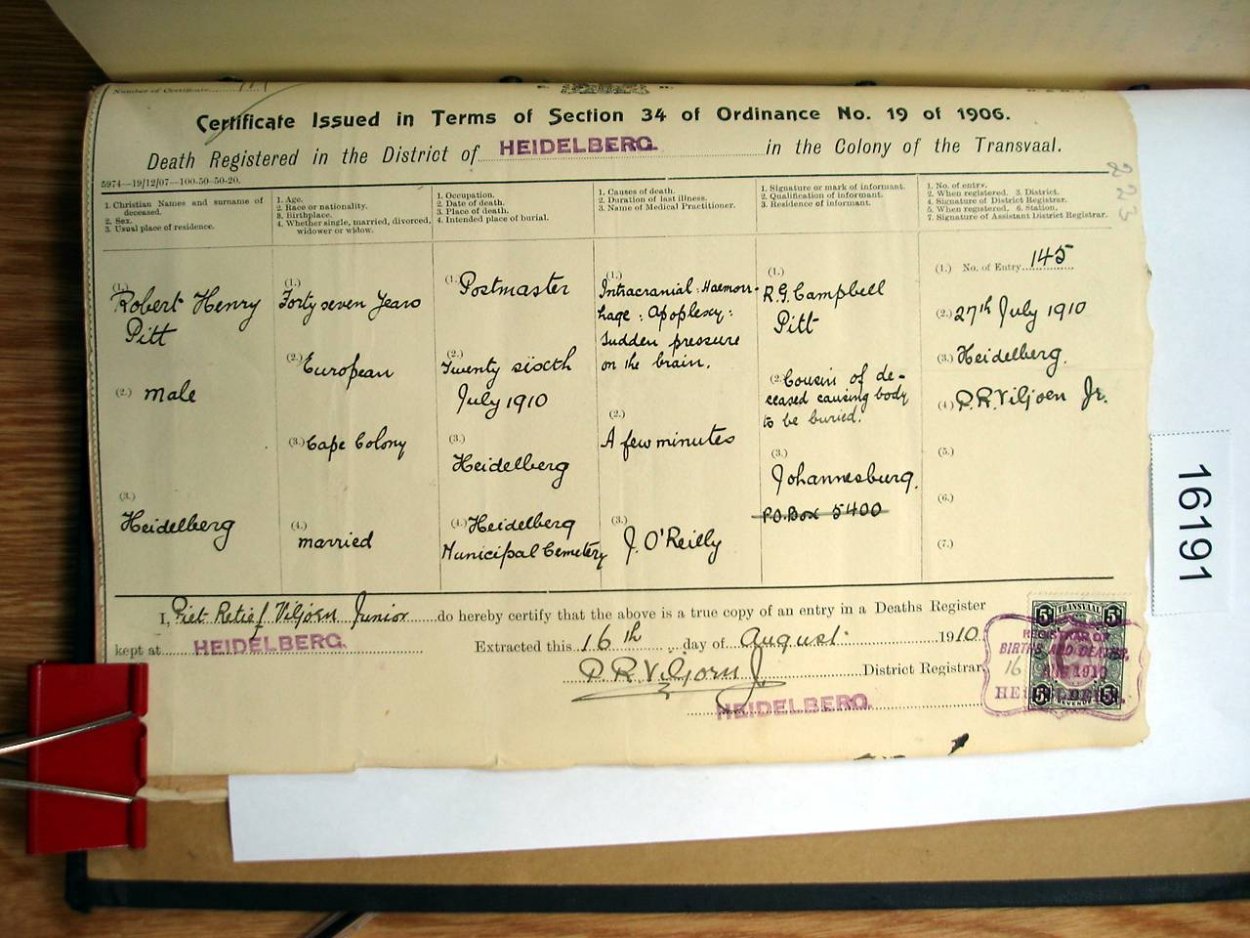 Number of Certificate
Certificate Issued in Terms of Section 34 of Ordinance No. 19 of 1906.
Death Registered in the District of HEIDELBERG. in the Colony of the Transvaal.
5974—19/12/07—100-50-50-20.
223
1. Christian Names and surname of
deceased.
2. Sex.
3. Usual place of residence.
1. Age.
2. Race or nationality.
3. Birthplace.
4. Whether single, married, divorced,
widower or widow.
1. Occupation.
2. Date of death.
3. Place of death.
4. Intended place of burial.
1. Causes of death.
2. Duration of last illness.
3. Name of Medical Practitioner.
1. Signature or mark of informant.
2. Qualification of informant.
3. Residence of informant.
1. No. of entry.
2. When registered. 3. District.
4. Signature of District Registrar.
5. When registered. 6. Station.
7. Signature of Assistant District Registrar.
(1.) Robert Henry
Pitt
(2.) male
(3.)
Heidelberg
(1.)
Forty seven Years
(2.) European
(3.) Cape Colony
(4.)
married
(1.) Postmaster
(2.)
Twenty sixth
July 1910
(3.)
Heidelberg
(4.) Heidelberg
Municipal Cemetery
(1.)
Intracranial Haemorr-
hage : Apoplexy :
Sudden pressure
on the brain.
(2.)
A few minutes
(3.) J. O'Reilly
(1.)
R.G. Campbell
Pitt
(2. Cousin of de-
ceased causing body
to be buried.
(3.)
Johannesburg.
P.O. Box 5400
(1.) No. of Entry 145
(2.) 27th July 1910
(3.) Heidelberg.
(4.) P.R. Viljoen Jr.
(5.)
(6.)
(7.)
I, Piet Retief Viljoen Junior do hereby certify that the above is a true copy of an entry in a Deaths Register
kept at HEIDELBERG. Extracted this 16th day of August 1910
P R Viljoen Jr. District Registrar.
HEIDELBERG.
5/ TRANSVAAL 5/
REGISTRAR OF
BIRTHS AND DEATHS.
16 AUG 1910
HEIDELBERG.
5/ REVENUE 5/
16191